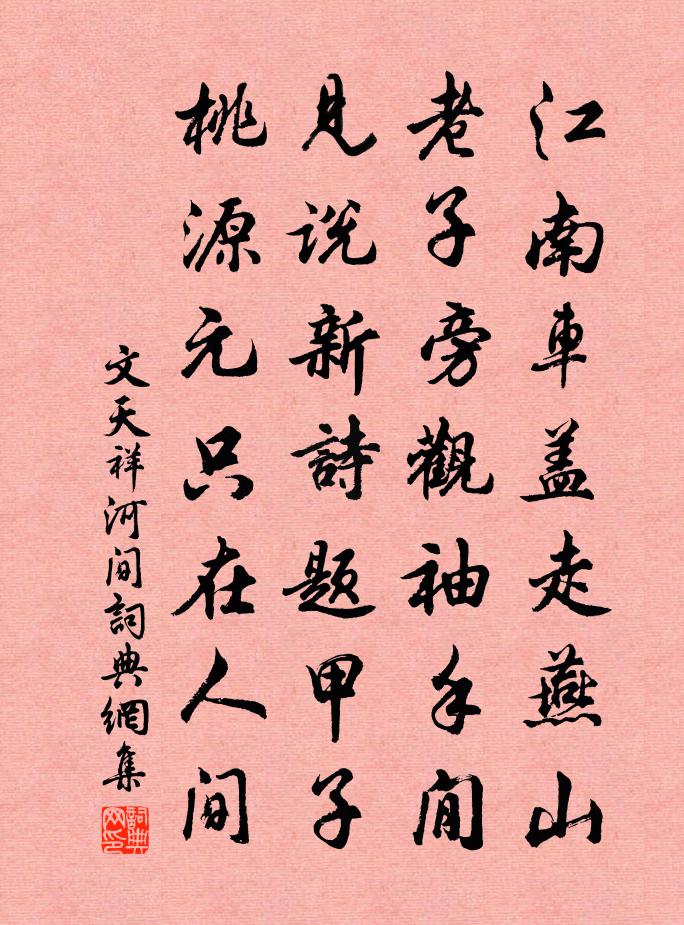 江南車盖走燕山
老子旁觀袖手閒
見说新詩题甲子
桃源元只在人間
文天祥河間詞典網集
詞典网印